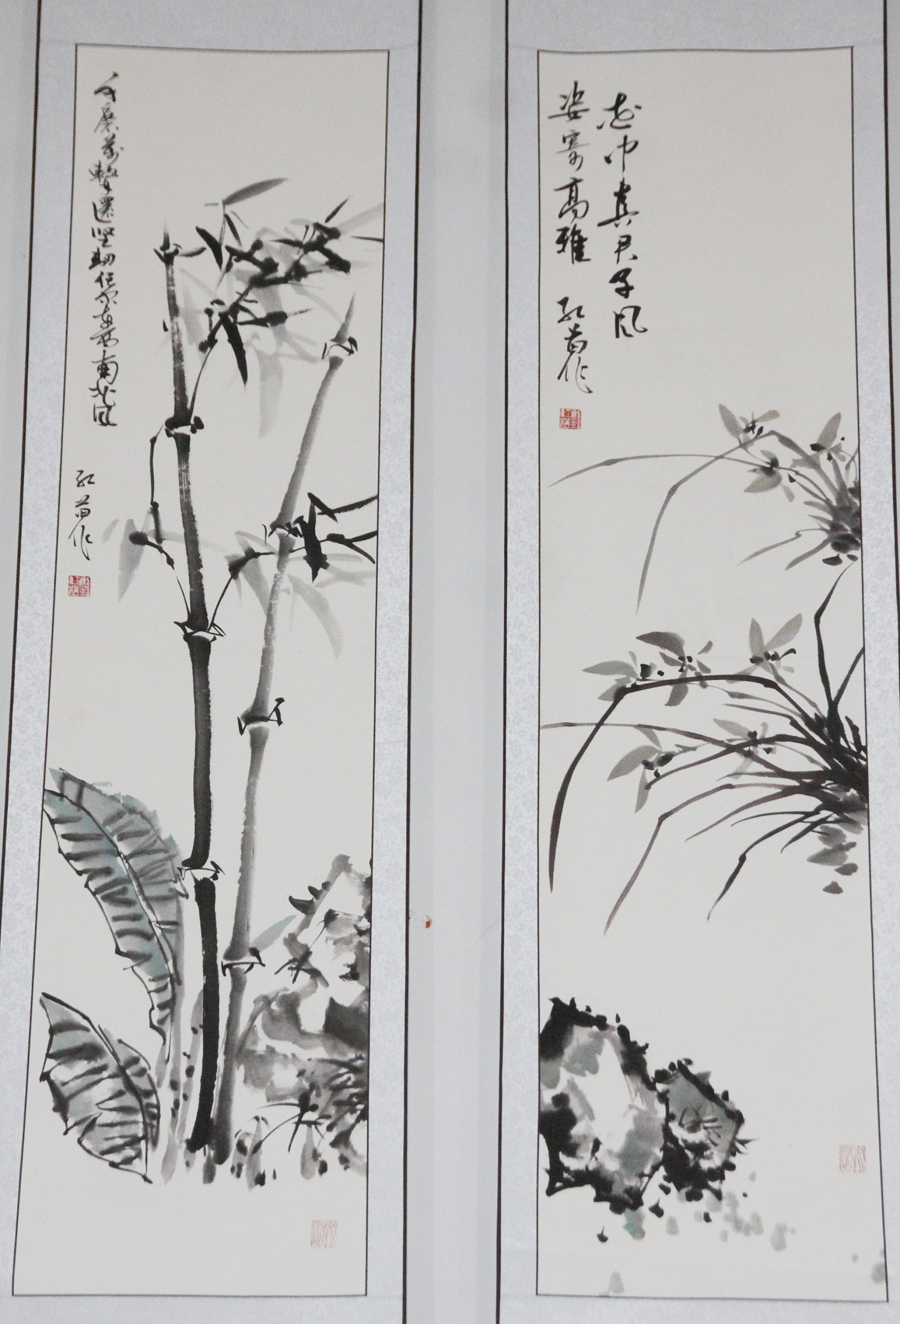 千磨萬擊還坚劲任尔东西南北风
红苗作
花中真君子风
姿寄高雅
红苗作